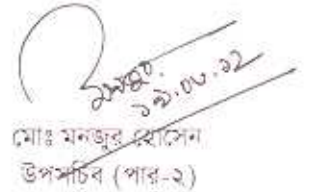 ১৯.০৮.১২
মোঃ মনজুর হোসেন
উপসচিব (পার-২)